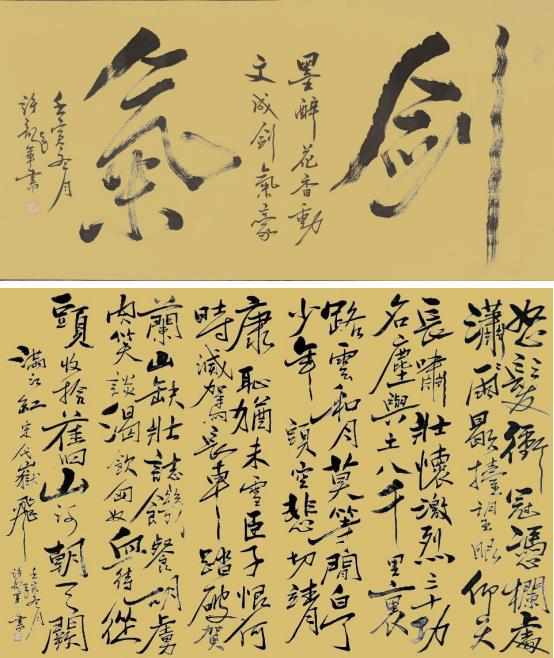 剑
墨醉花香動
文成劍氣豪
氣
壬寅冬月
年書
怒髮衝冠憑欄處
瀟瀟雨歇擡望眼仰天
長嘯壯懷激烈三十功
名塵與土八千里裏
路雲和月莫等閒白了
少年頭空悲切靖
康恥猶未雪臣子恨何
時滅駕長車踏破賀
蘭山缺壯誌饑餐胡虜
肉笑談渴飲匈奴血待從
頭收拾舊山河朝天闕
滿江紅宋代嶽飛
壬寅冬月
年書